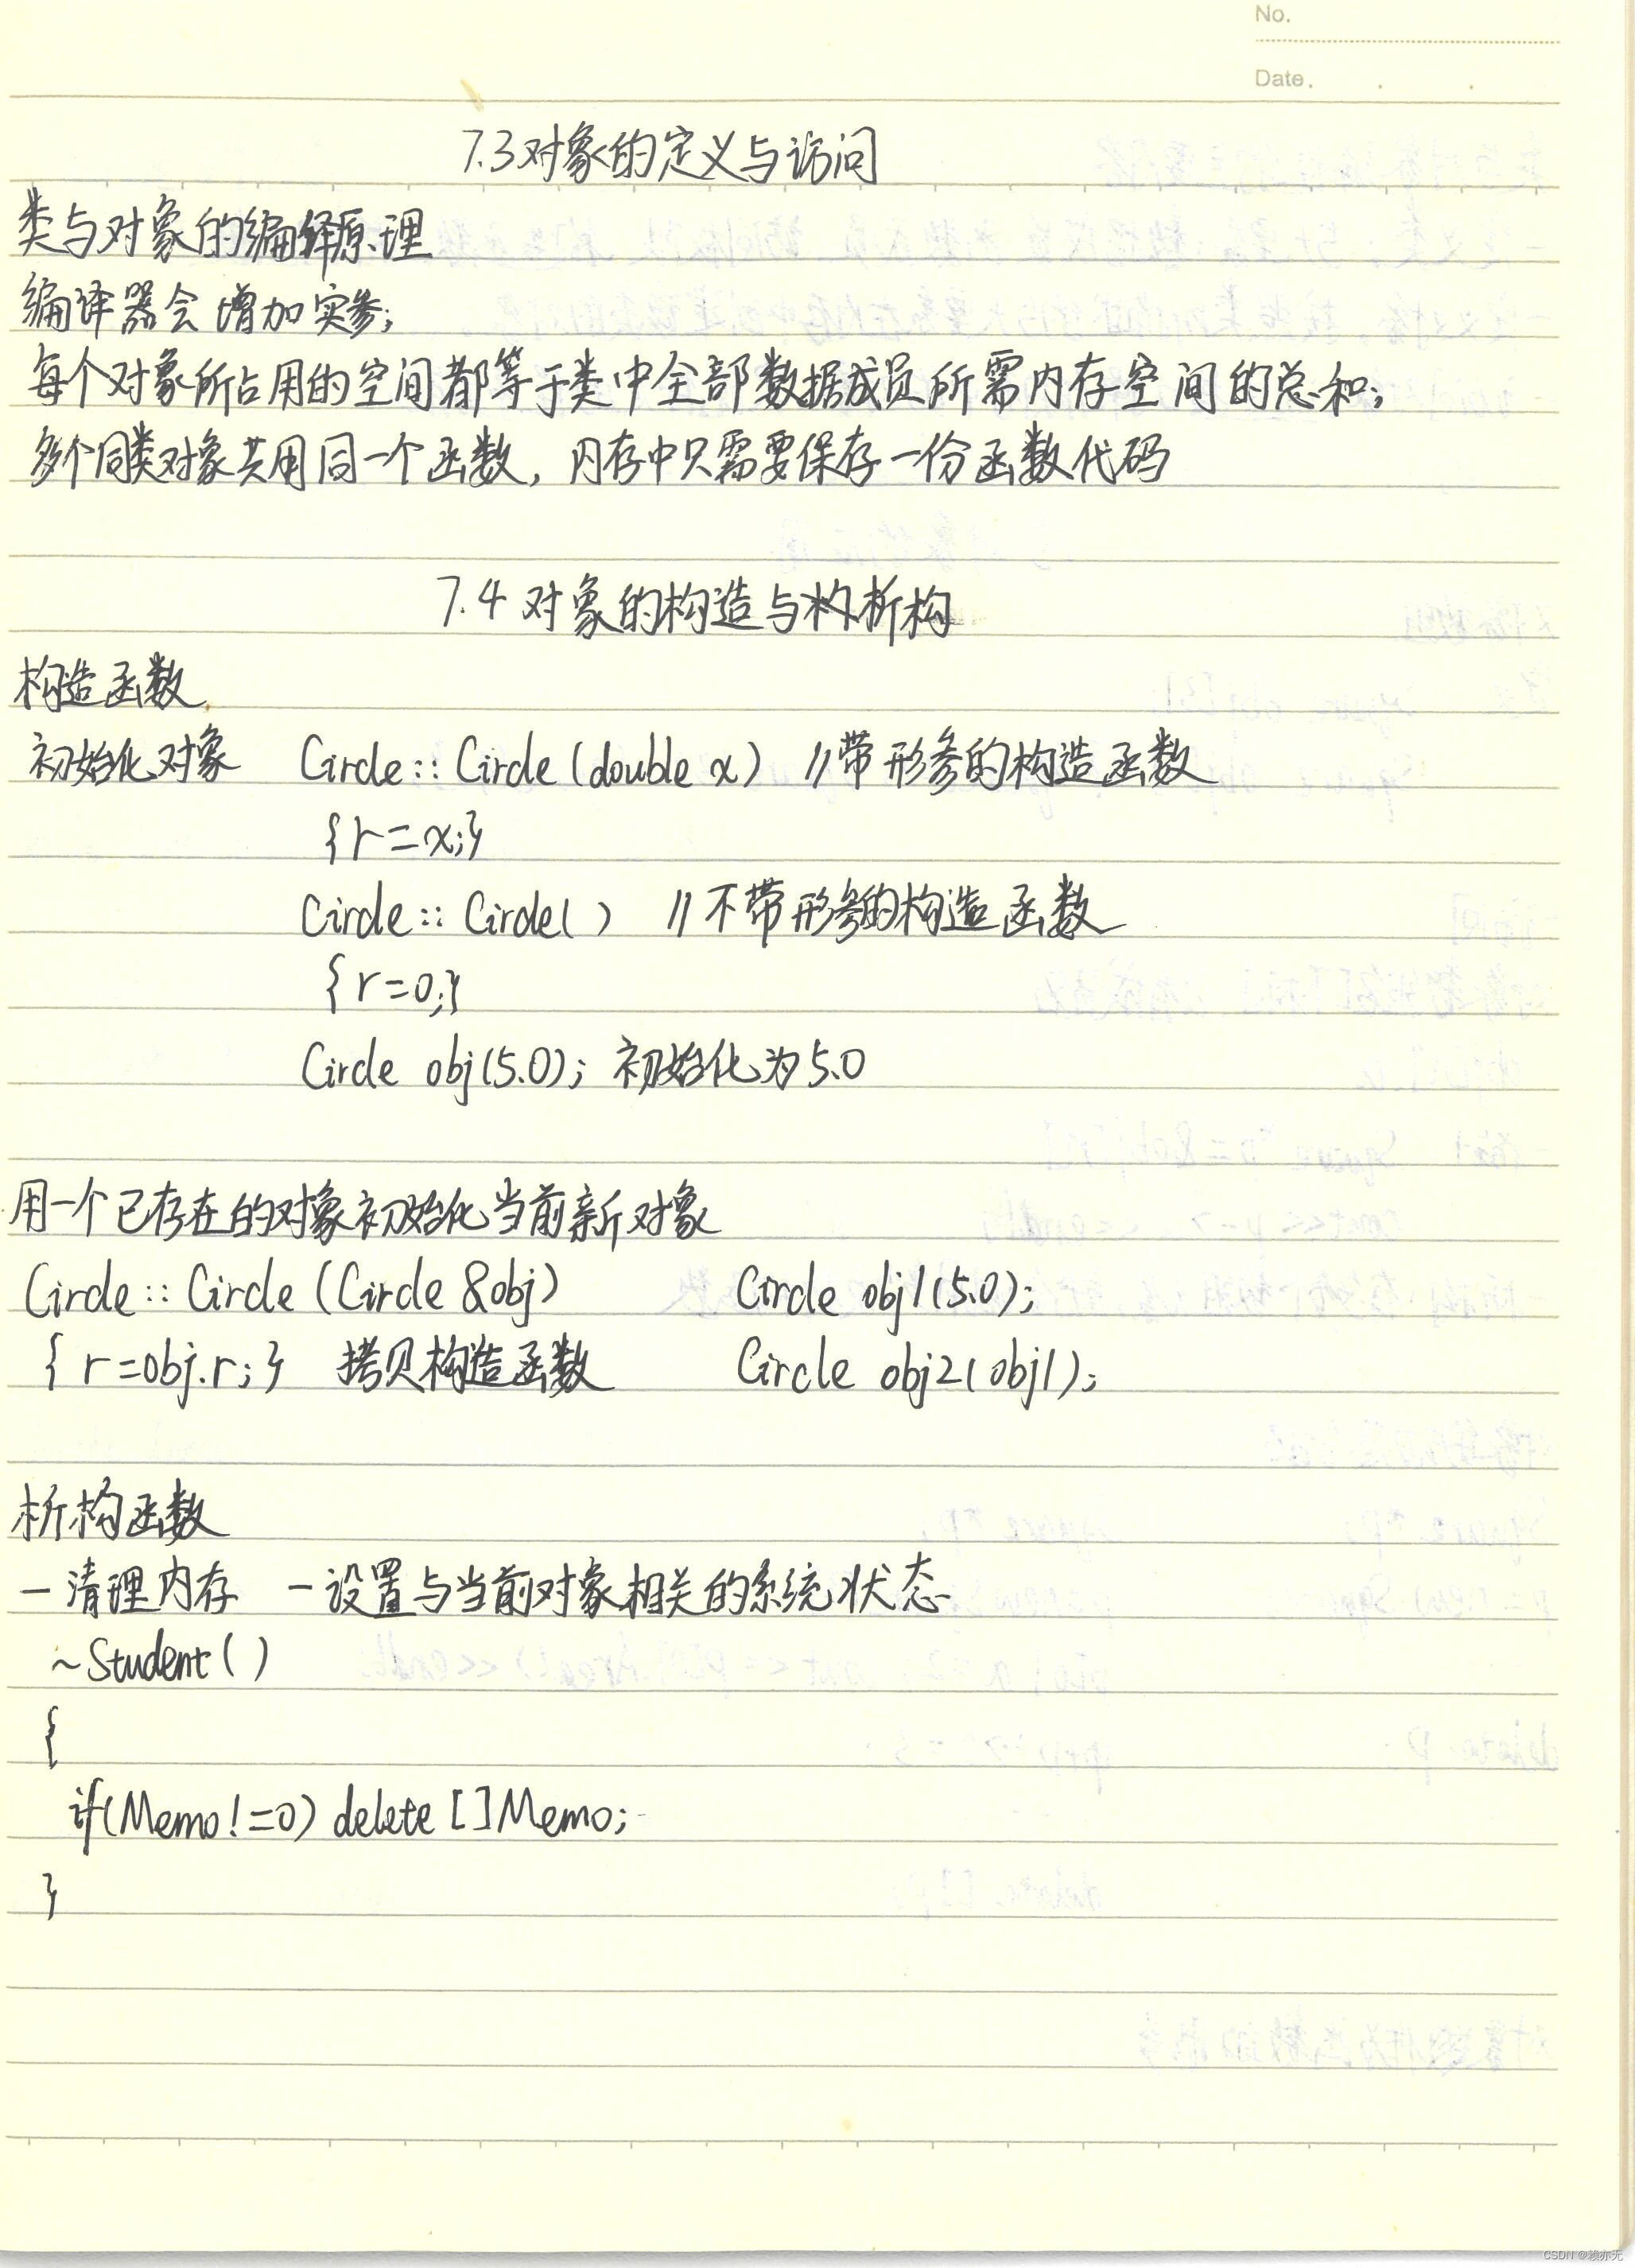 No.
Date.
7.3对象的定义与访问
类与对象的编译原理
编译器会增加实参;
每个对象所占用的空间都等于类中全部数据成员所需内存空间的总和;
多个同类对象共用同一个函数,内存中只需要保存一份函数代码
7.4 对象的构造与析构
构造函数
初始化对象 Circle::Circle(double x) //带形参的构造函数
{r=x;}
Circle::Circle() //不带形参的构造函数
{r=0;}
Circle obj(5.0); 初始化为5.0
用一个已存在的对象初始化当前新对象
Circle::Circle(Circle &obj) Circle obj1(5.0);
{r=obj.r;} 拷贝构造函数 Circle obj2(obj1);
析构函数
-清理内存 -设置与当前对象相关的系统状态
~Student()
{
if(Memo!=0) delete []Memo;
}
CSDN @赖亦无